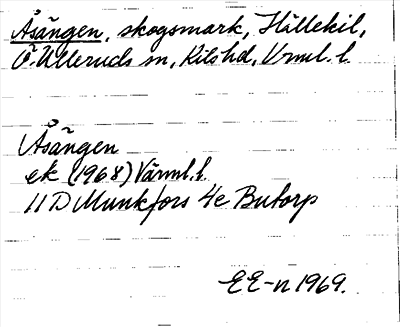 Åsängen, skogsmark, Hällekil,
Ö. Ulleruds sn, Kils hd, Vrml. l.
Åsängen
ek (1968) Värml. l.
11 D Munkfors 4e Butorp
EE-n 1969.